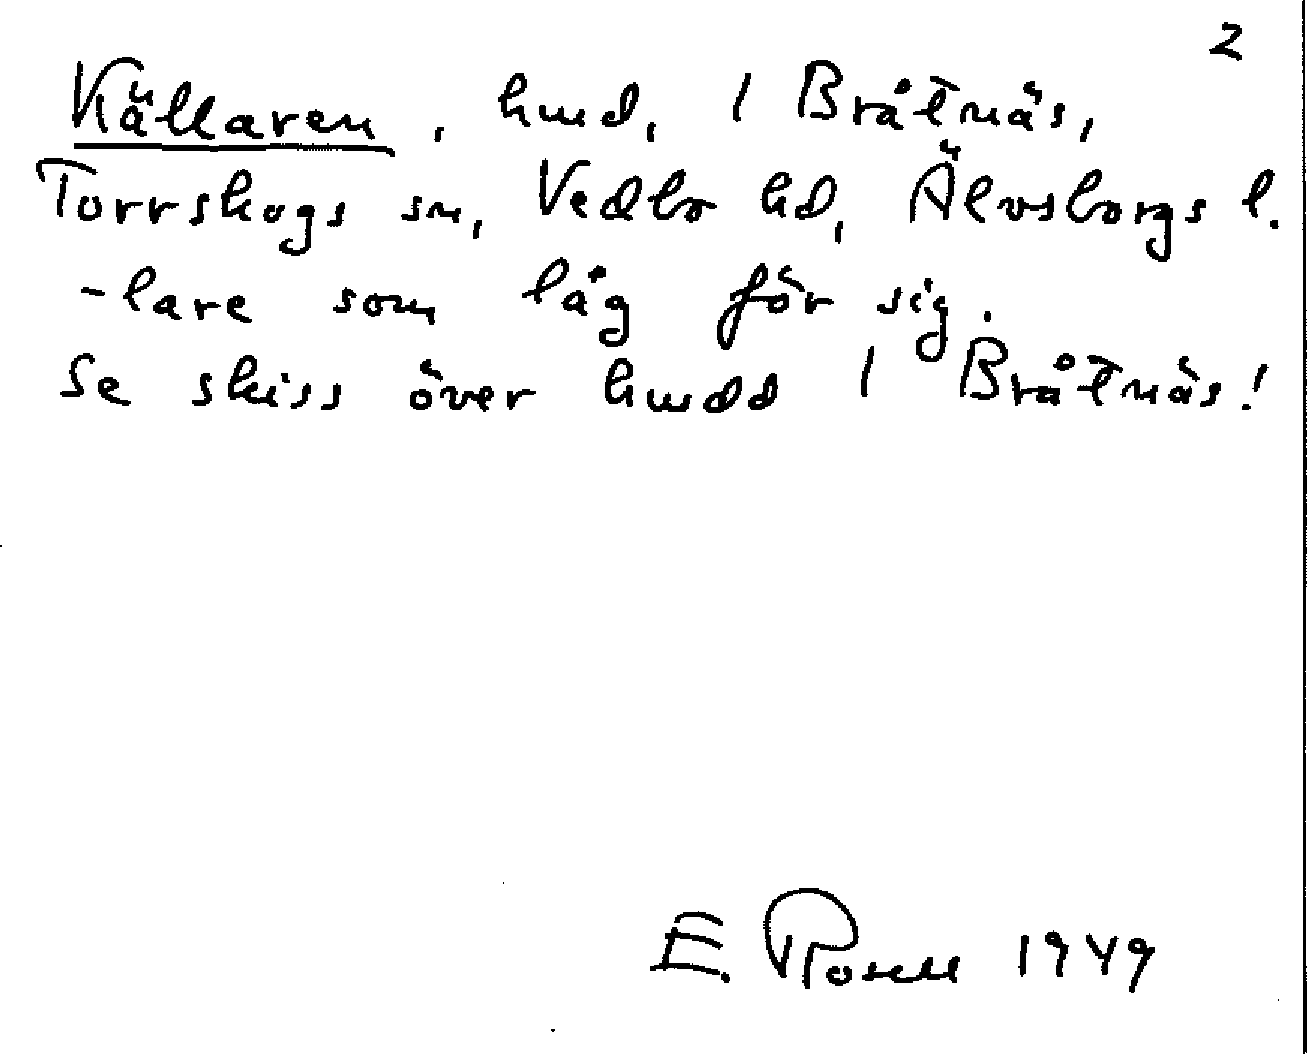 2
Källaren, hmd, 1 Bråtnäs,
Torrskogs sn, Vedbo hd, Älvsborgs l.
-lare som låg för sig.
Se skiss över hmdd 1 Bråtnäs!
E. Rosell 1949